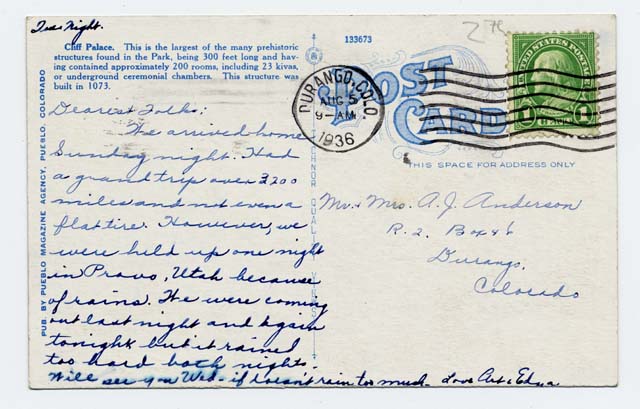 Tues Night.
Cliff Palace. This is the largest of the many prehistoric
structures found in the Park, being 300 feet long and hav-
ing contained approximately 200 rooms, including 23 kivas,
or underground ceremonial chambers. This structure was
built in 1073.
Dearest Folks:
We arrived home
Sunday night. Had
a grand trip over 3200
miles and not even a
flat tire. However, we
were held up one night
in Provo, Utah because
of rains. We were coming
out last night and again
tonight but it rained
too hard both nights.
Will see you Wed. if doesn't rain too much. Love Art & Edna
PUB. BY PUEBLO MAGAZINE AGENCY, PUEBLO, COLORADO
133673
POST
CARD
DURANGO, COLO.
AUG 5
9-AM
1936
UNITED STATES POSTAGE
1 CENT 1
THIS SPACE FOR ADDRESS ONLY
Mr. & Mrs. A. J. Anderson
R. 2. Box 46
Durango,
Colorado